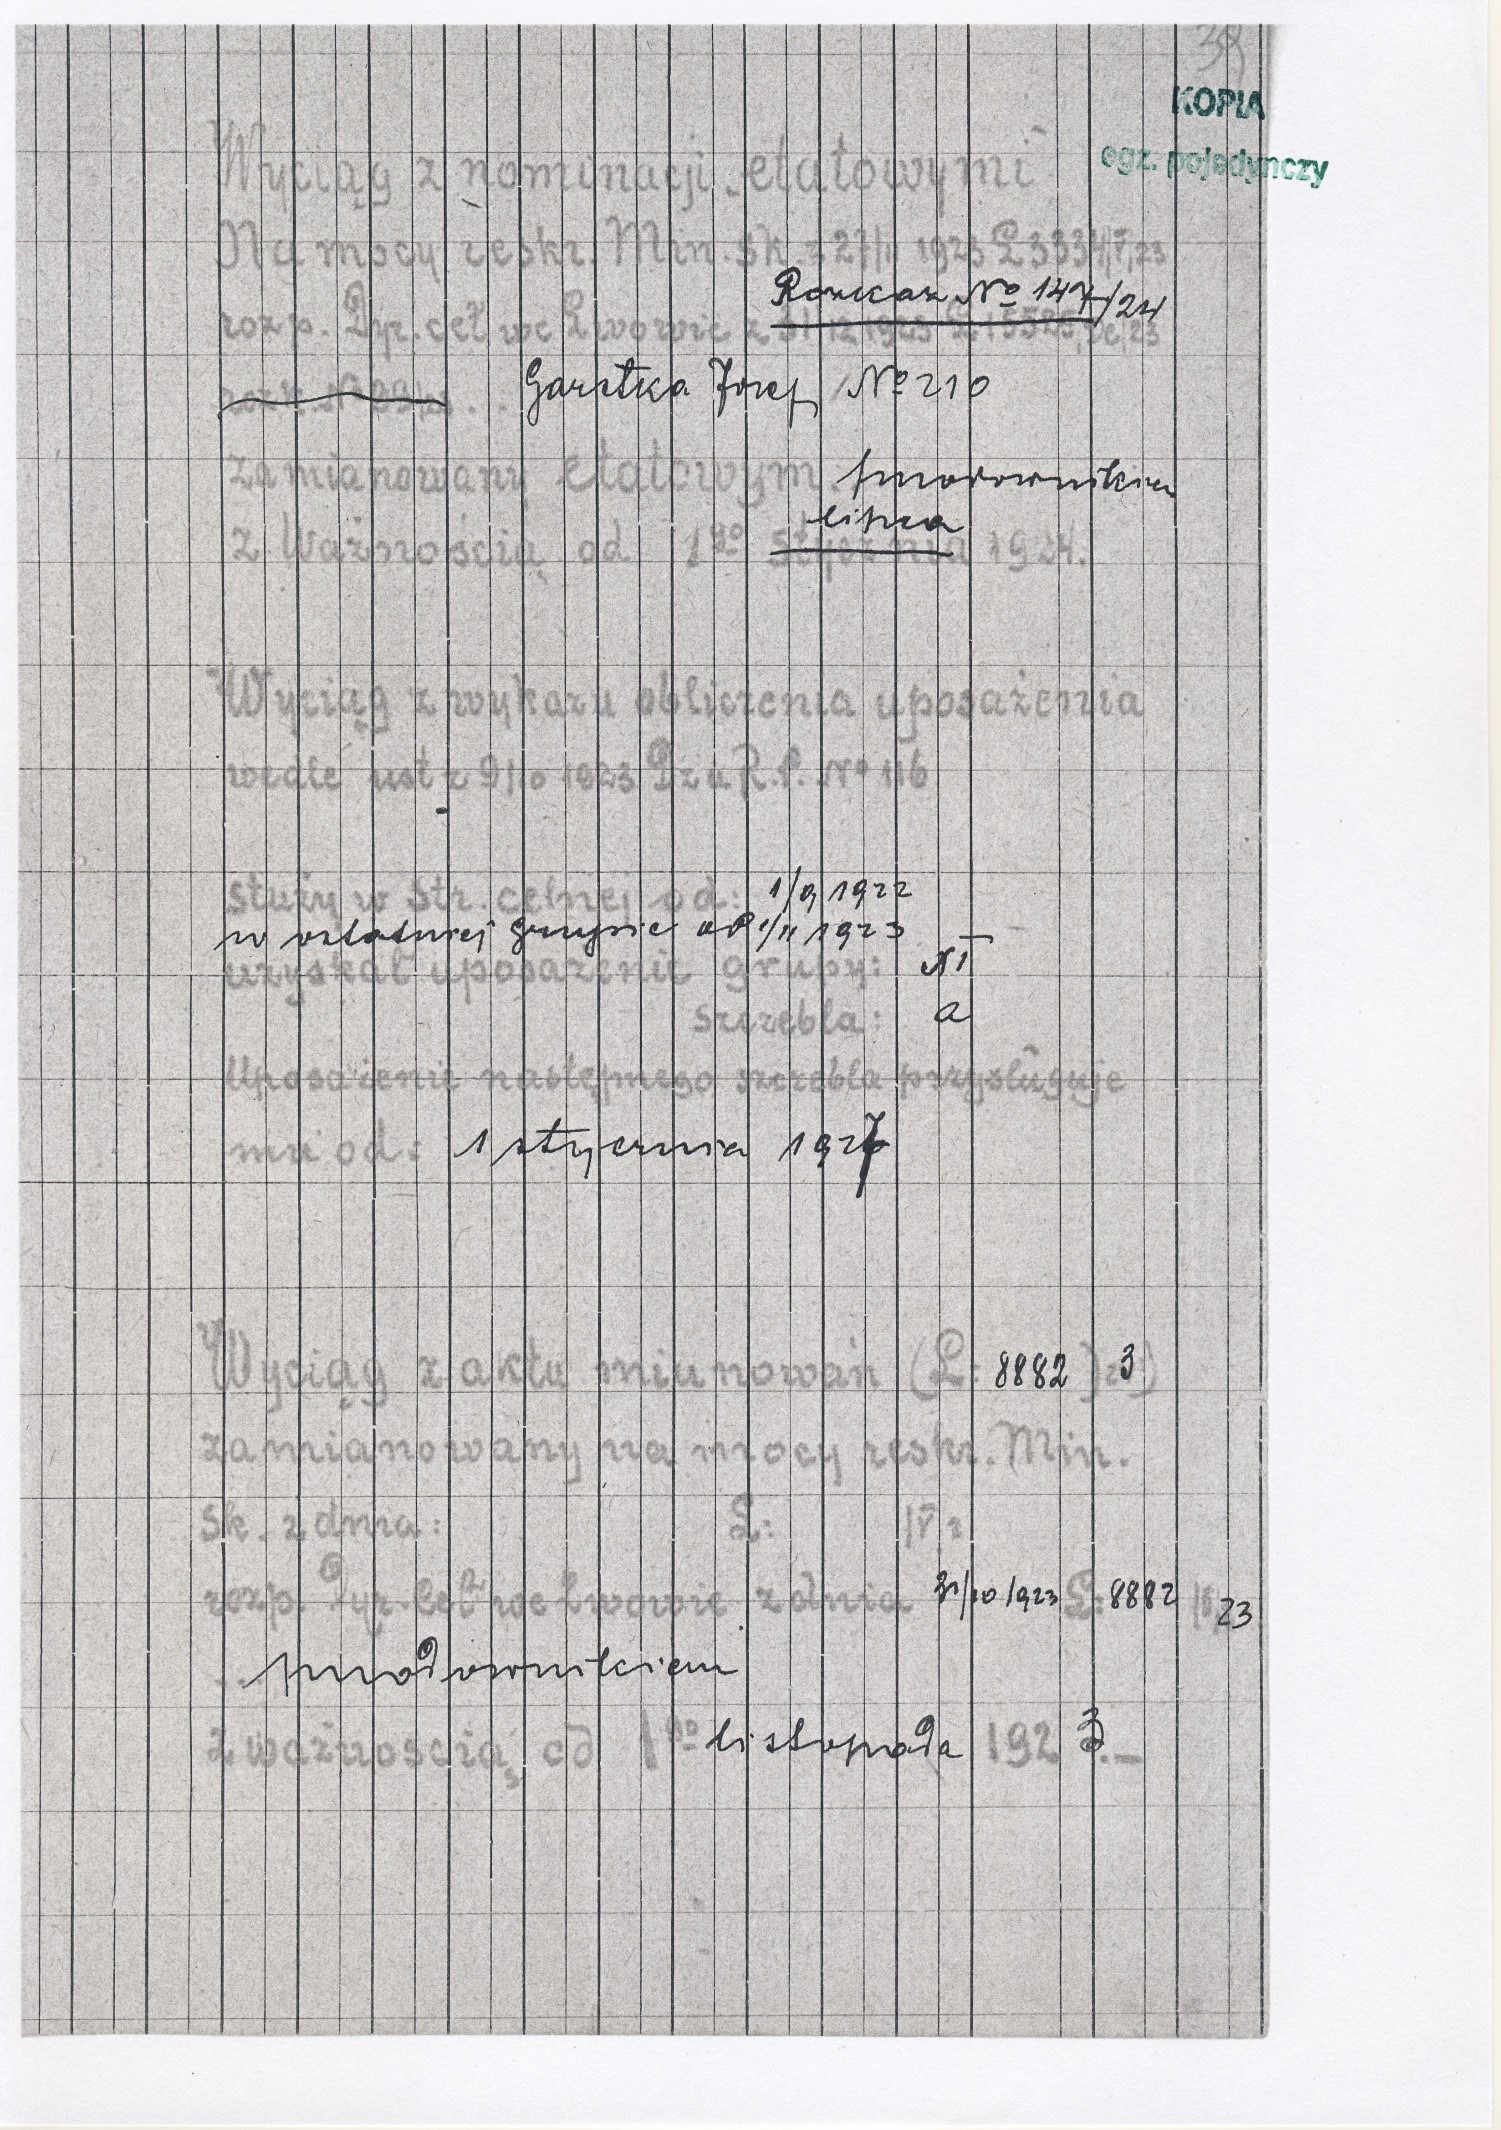 38
KOPIA
egz. pojedynczy
Wyciąg z nominacji etatowymi
Na mocy reskr. Min. sk. z 27/11 1923 L 3334/V/23
Rozkaz No 147/24
rozp. Dyr. ceł we Lwowie z 31 12 1923 L 15525 23
Garstka Józef No 210
zamianowany etatowym. przodownikiem
lipca
z Ważnością od 1go stycznia 1924.
Wyciąg z wykazu obliczenia uposażenia
wedle ust z 9/10 1923 Dz u R. P. No 116
służy w str. celnej od: 1/9 1922
w ostatniej grupie od 1/11 1923
uzyskał uposażenie grupy: XI
szczebla: a
Uposażenie następnego szczebla przysługuje
mu od: 1 stycznia 1927
Wyciąg z aktu mianowań (L: 8882 ) 3)
zamianowany na mocy reskr. Min.
sk. z dnia: L: /V z
rozp. Dyr. Ceł we Lwowie z dnia 31/10 1923 L: 8882 23
przodownikiem
z ważnością od 1go listopada 1923.—